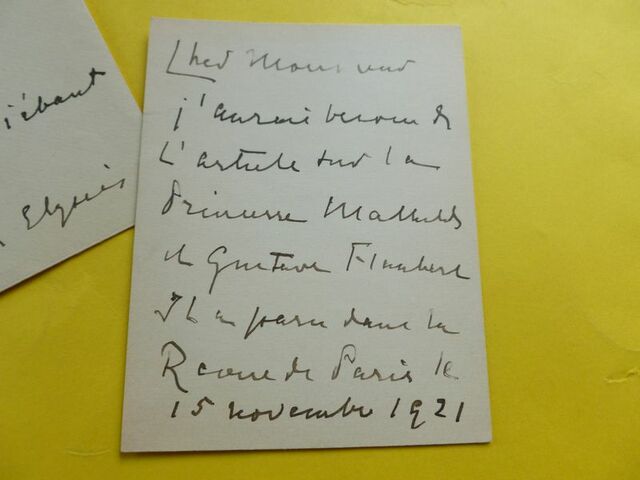 iébaut
Elysées
Cher Monsieur
j'aurai besoin de
l'article sur la
Princesse Mathilde
et Gustave Flaubert
Il a paru dans la
Revue de Paris le
15 novembre 1921